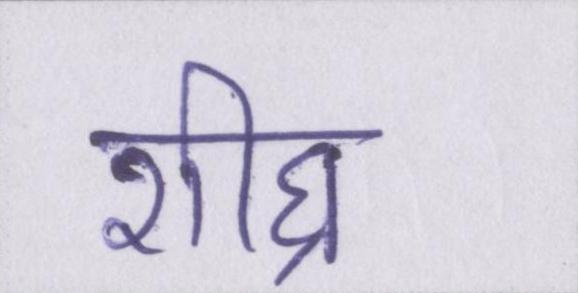 शीघ्र